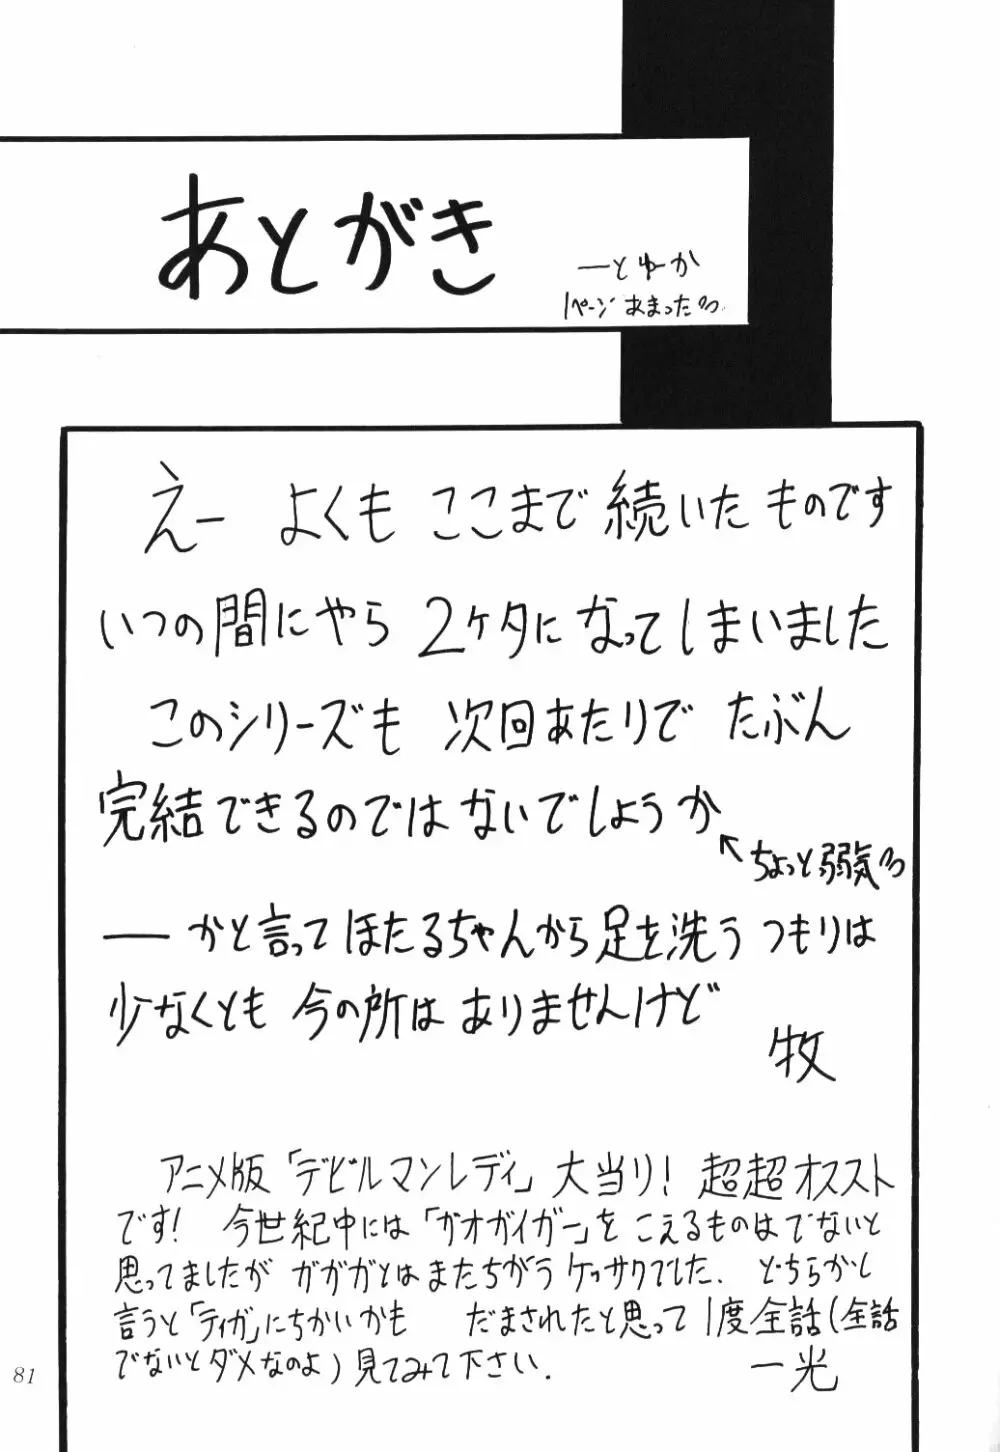 あとがき
―とゆーか
1ページあまった
えー よくも ここまで 続いた ものです
いつの間にやら 2ケタに なってしまいました
このシリーズも 次回あたりで たぶん
完結できるのではないでしょうか
←ちょっと弱気
― かと言って ほたるちゃんから 足を洗う つもりは
少なくとも 今の所は ありませんけど
牧
アニメ版「デビルマンレディ」大当り! 超超オススト
です! 今世紀中には「ガオガイガー」を こえるものはでないと
思ってましたが ガガガとは またちがう ケッサクでした. どちらかと
言うと「ティガ」にちかいかも だまされたと思って 1度全話(全話
でないとダメなのよ)見てみて下さい.
一光
81